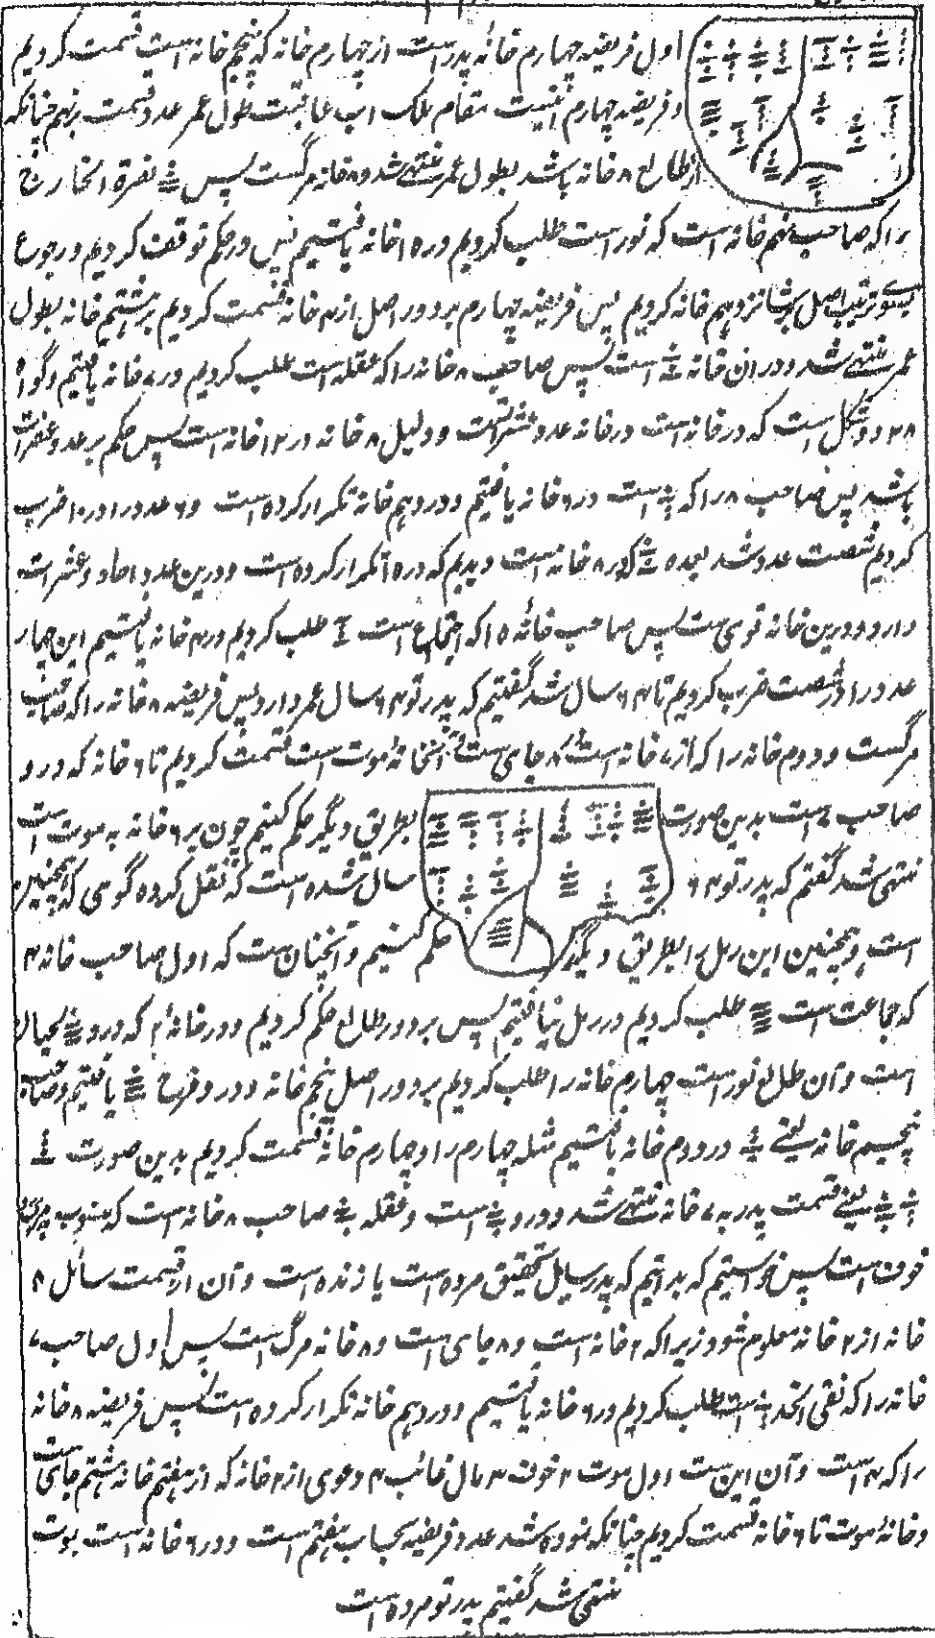 اول فریضه چهارم خانه پدر است از چهارم خانه که پنجم خانه است قسمت کردیم
و فریضه چهارم اینست مقام ملک اب عاقبت طول عمر عدد قسمت بنهم چنانکه
از طالع ۸ خانه باشد بطول عمر منتهی شد و ۸ خانه مرگست پس نقرة الخارج
را که صاحب نهم خانه است که نور است طلب کردیم در ۱۵ خانه یافتیم پس در حکم توقف کردیم و رجوع
بسوی ترتیب اصل شانزدهم خانه کردیم پس فریضه چهارم بر دور اصل از ۴ خانه قسمت کردیم بر هشتم خانه بطول
عمر منتهی شد و در آن خانه است پس صاحب ۸ خانه را که عقله است طلب کردیم در ۷ خانه یافتیم و گواه
۲۸ دو شکل است که در خانه است در خانه عدد عشرات است و دلیل ۸ خانه در ۱۲ خانه است پس حکم بر عدد عشرات
باشد پس صاحب ۸ را که است در ۶ خانه یافتیم و در دهم خانه تکرار کرده است و ۶ عدد را در ۱۰ ضرب
کردیم شصت عدد شد بعده که در ۸ خانه است دیدیم که در ۵ تکرار کرده است و درین عدد احاد و عشرات
دارد و درین خانه قوی ست پس صاحب خانه ۵ را که اجتماع است طلب کردیم در ۴ خانه یافتیم این چهار
عدد را در شصت ضرب کردیم تا ۶۴ سال شد گفتیم که پدر تو ۶۴ سال عمر دارد پس فریضه ۸ خانه را که صاحب
مرگست و دوم خانه را که از ۷ خانه است ۸ جای ست خانه موت است قسمت کردیم تا ۶ خانه که درو
صاحب ۲ است بدین صورت بطریق دیگر حکم کنیم چون بر ۶ خانه به موت است
منتهی شد گفتم که پدر تو ۶۴ سال شده است که نقل کرده گوئی که همچنین
است و همچنین این رمل را بطریق دیگر حکم کنیم و آنچنان ست که اول صاحب خانه ۴
که جماعت است طلب کردیم و در رمل نیافتیم پس بر دور طالع حکم کردیم و در خانه ۴ که درو لحیان
است و آن طالع نور است چهارم خانه را طلب کردیم بر دور اصل پنجم خانه و در و فرح یافتیم و صاحب
پنجم خانه یعنی در دوم خانه یافتیم مثله چهارم را و چهارم خانه قسمت کردیم بدین صورت
یعنی قسمت پدر به ۷ خانه منتهی شد و در و است و عقله صاحب ۸ خانه است که منسوب بمرگ و
خوف است پس خواستیم که بدانیم که پدر سایل تحقیق مرده است یا زنده است و آن از قسمت سائل ۸
خانه از ۲ خانه معلوم شود زیرا که ۲ خانه است و ۸ جای است و ۸ خانه مرگ است پس اول صاحب ۷
خانه را که نقی الخد است طلب کردیم در ۶ خانه یافتیم و در دهم خانه تکرار کرده است پس فریضه ۸ خانه
را که ۴ است و آن این ست اول موت ۲ خوف ۳ مال غائب ۴ دعوی از ۲ خانه که از هفتم خانه هشتم جای ست
و خانه موت تا ۶ خانه قسمت کردیم چنانکه نموده شد عدد فریضه بحساب هفتم است و در ۶ خانه است بموت
منتهی شد گفتیم پدر تو مرده است